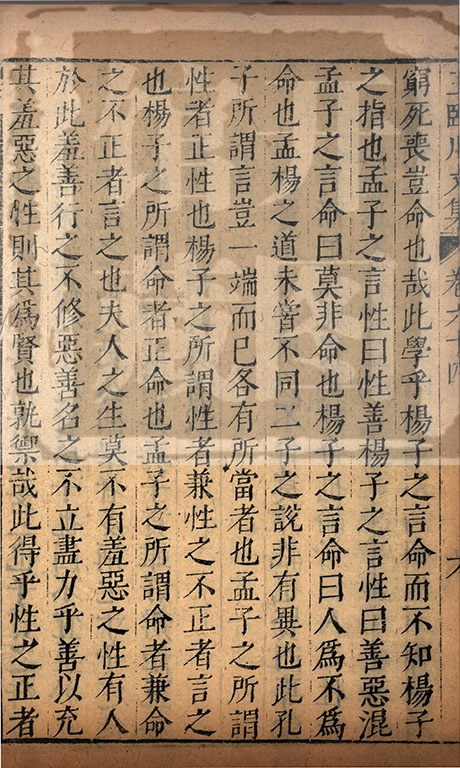 王臨川文集 卷六十四 六
窮死喪豈命也哉此學乎楊子之言命而不知楊子
之指也孟子之言性曰性善楊子之言性曰善惡混
孟子之言命曰莫非命也楊子之言命曰人爲不爲
命也孟楊之道未嘗不同二子之說非有異也此孔
子所謂言豈一端而已各有所當者也孟子之所謂
性者正性也楊子之所謂性者兼性之不正者言之
也楊子之所謂命者正命也孟子之所謂命者兼命
之不正者言之也夫人之生莫不有羞惡之性有人
於此羞善行之不修惡善名之不立盡力乎善以充
其羞惡之性則其爲賢也孰禦哉此得乎性之正者